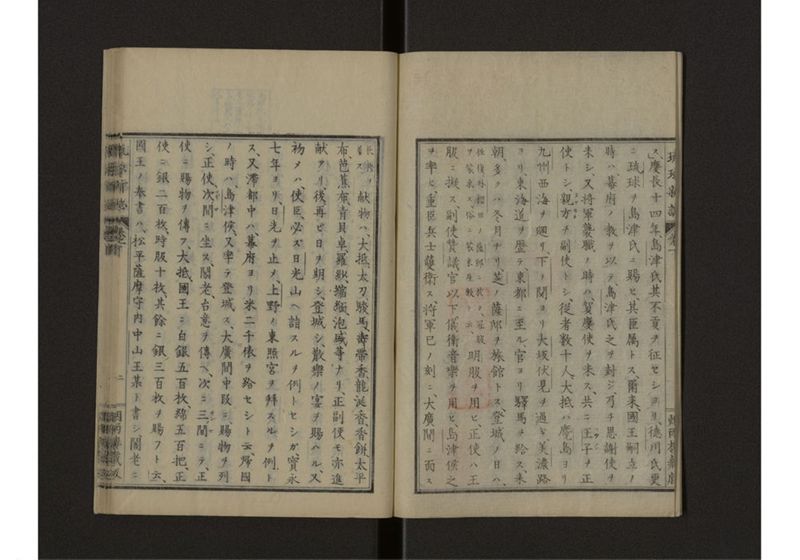 ス慶長十四年島津氏其不貢ヲ征セシヨリ德川氏更
ニ琉球ヲ島津氏ニ賜ヒ其臣屬トス爾來國王嗣立ノ
時ハ幕府ノ敎ヲ以テ島津氏之ヲ封ジ乃チ恩謝使ヲ
來シ又將軍襲職ノ時ハ賀慶使ヲ來ス共ニ王子ヲ正
使トシ親方ヲ副使トシ從者數十人大抵ハ麑島ヨリ
九州西海ヲ廻リ下ノ關ヨリ大坂伏見ヲ過ギ美濃路
ヨリ東海道ヲ歷テ東都ニ至ル官ヨリ驛馬ヲ給ス來
朝多クハ冬月ナリ芝ノ薩邸ヲ旅館トス登城ノ日ハ
明服ヲ用ヒ正使ハ王
服ニ擬ス副使贊議官以下儀衞音樂ヲ用ヒ島津侯之
ヲ率ヒ重臣兵士護衞ス將軍巳ノ刻ニ大廣間ニ面ス
獻物ハ大抵太刀駿馬壽帶香龍涎香香餅太平
布芭蕉布靑貝卓羅紗縮緬泡盛等ナリ正副使モ亦進
獻アリ後再ビ日ヲ期シ登城シ散樂ノ宴ヲ賜ハル又
初メハ使臣必ズ日光山ヘ詣スルヲ例トセシガ寬永
七年ヨリ日光ヲ止メ上野ノ東照宮ヲ拜スルヲ例ト
ス又滯都中ハ幕府ヨリ米二千俵ヲ給セシト云歸國
ノ時ハ島津侯又率テ登城ス大廣間中段ニ賜物ヲ列
シ正使次間ニ坐ス閣老台意ヲ傳ヘ次ニ三間ニテ正
使ニ賜物ヲ傳フ大抵國王ニ白銀五百枚綿五百把正
使ニ銀二百枚時服十枚其餘ニ銀三百枚ヲ賜フト云
國王ノ奉書ハ松平薩摩守內中山王某ト書シ閣老ニ
二